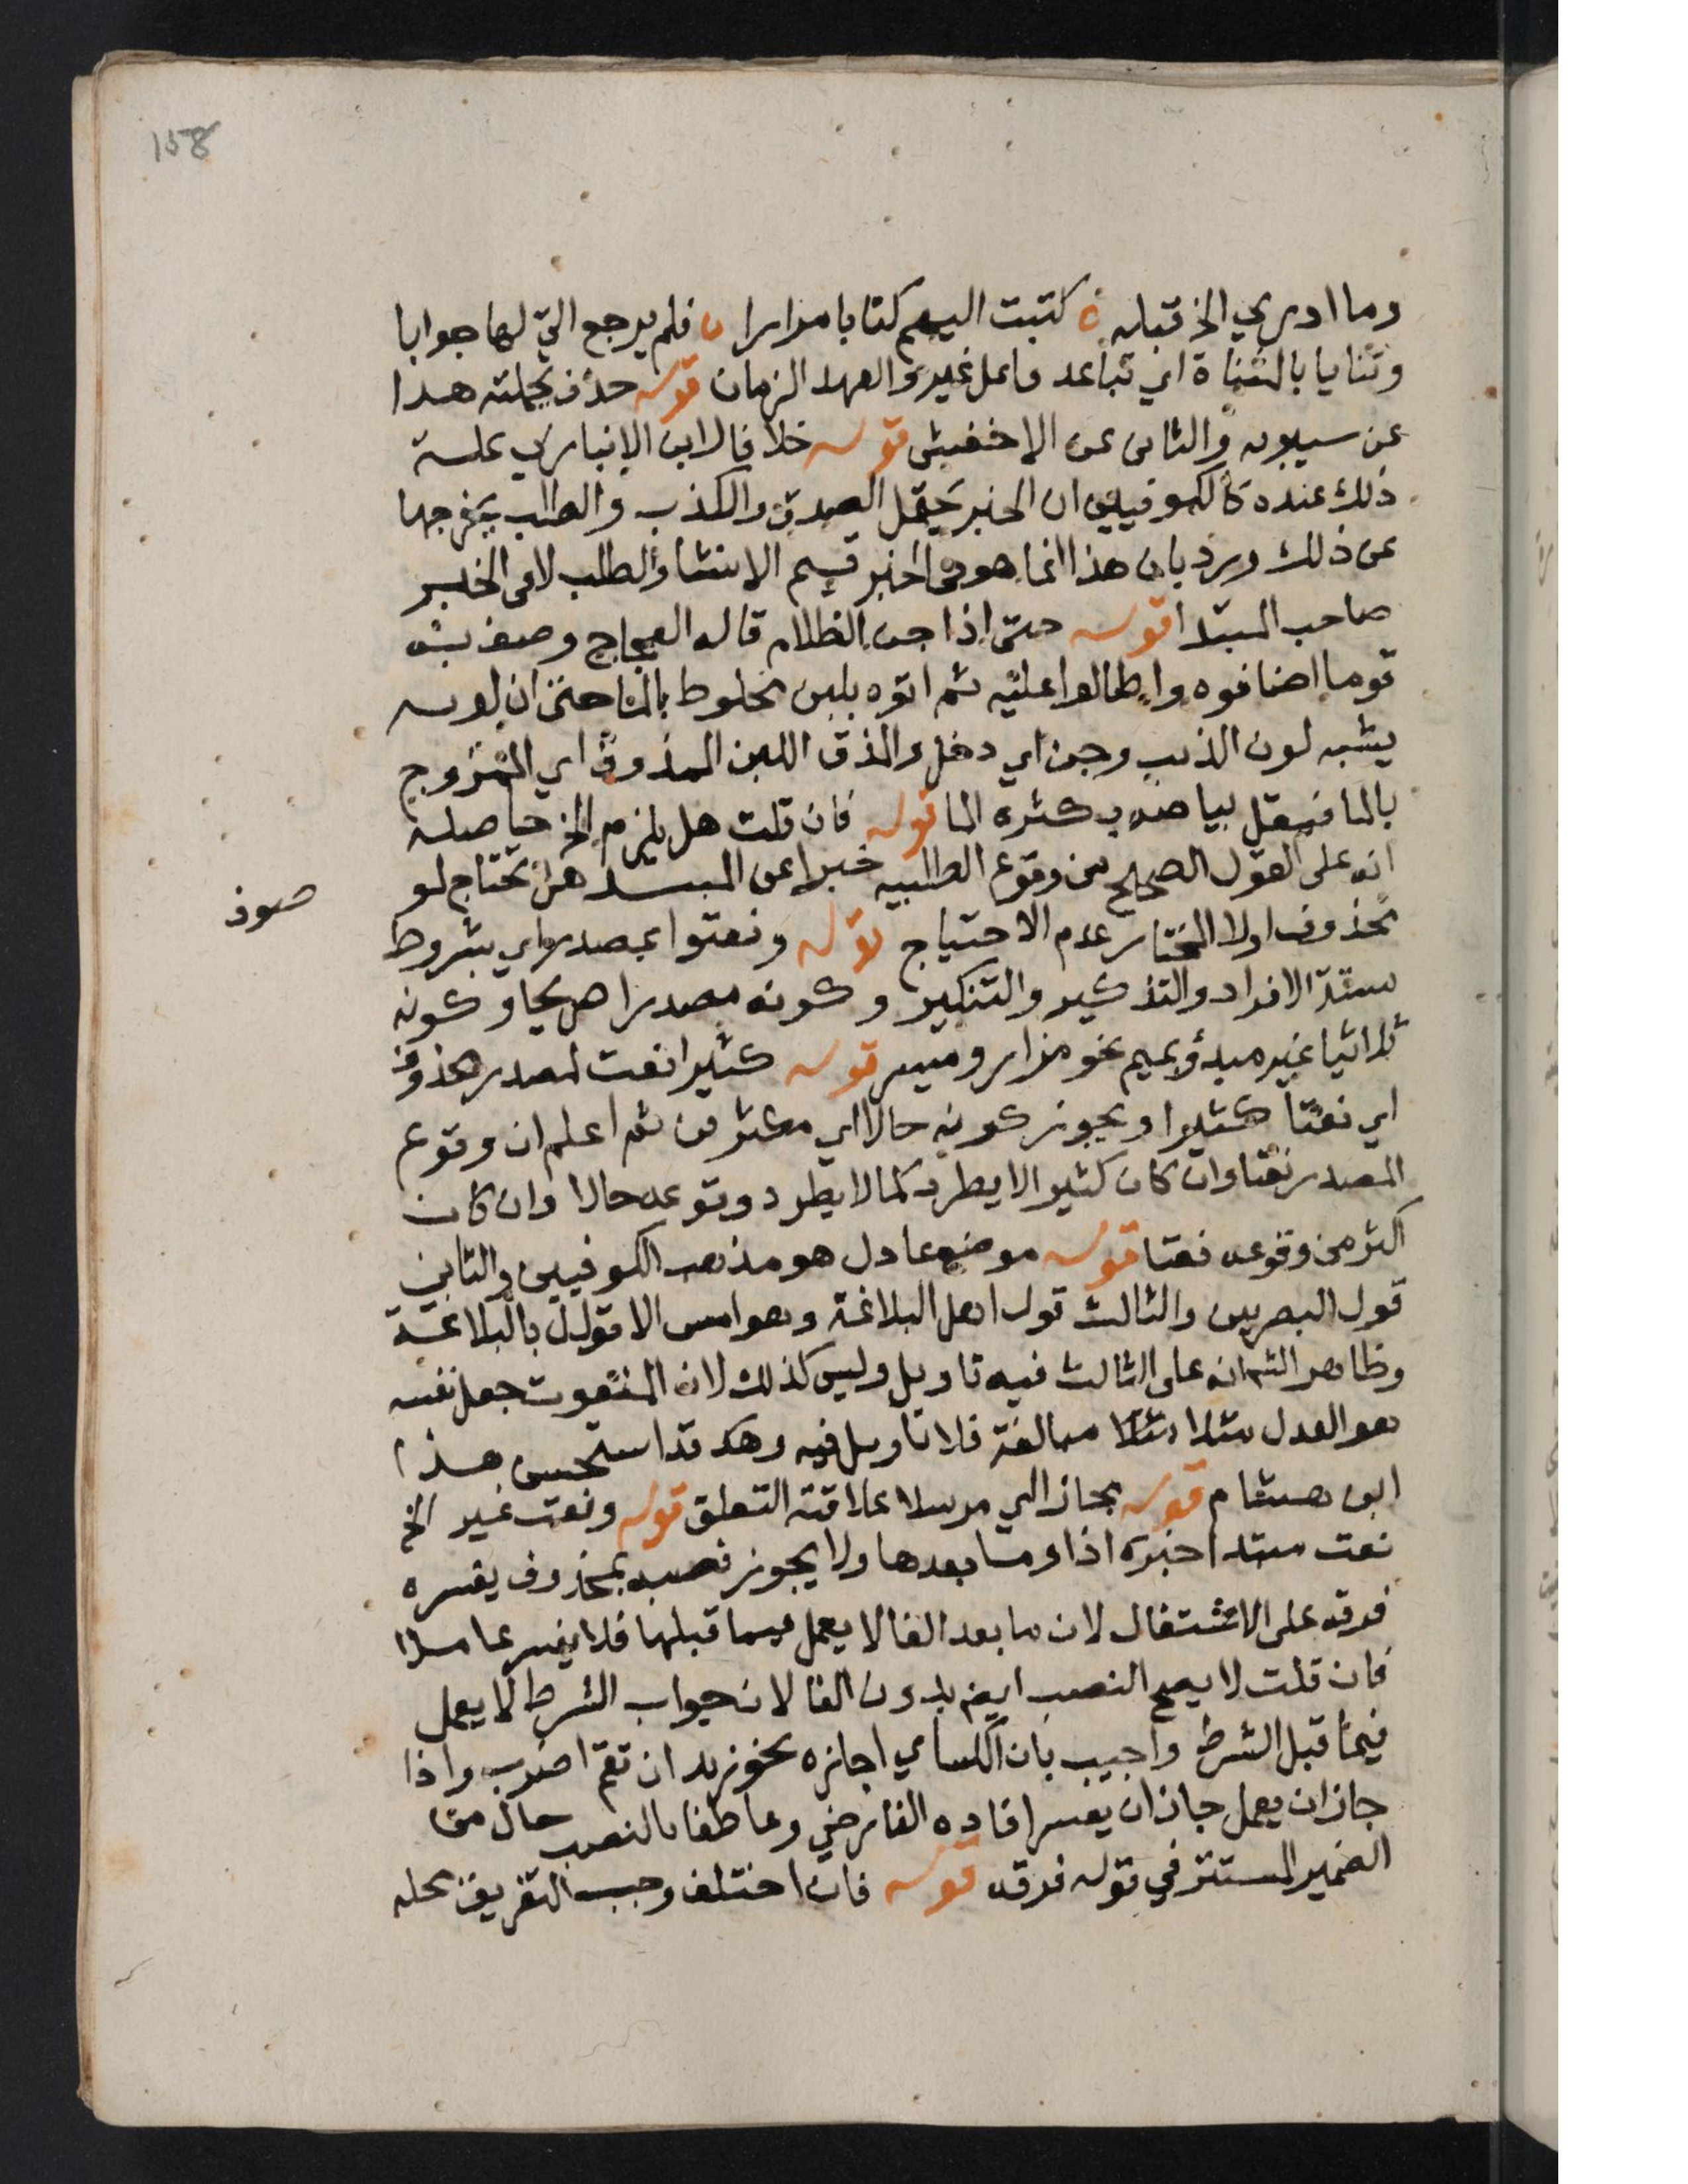 158
وما ادري الخ قبله ه كتبت اليهم كتابا مرارا ه فلم يرجع الي لها جوابا
وتنايا بالمثناة اي تباعد فاعل غير والعهد الزمان قوله حذف بجملته هذا
عن سيبويه والثاني عن الاخفش قوله خلافا لابن الانباري علة
ذلك عنده كالكوفيين ان الخبر يحتمل الصدق والكذب والطلب يخرجها
عن ذلك ورد بان هذا انما هو في الخبر قسيم الانشا والطلب لا في الخبر
صاحب المبتدا قوله حتى اذا جن الظلام قاله العجاج وصف به
قوما اضافوه واطالوا عليه ثم اتوه بلبن مخلوط بالما حتى ان لونه
يشبه لون الذيب وجن اي دخل والمذق اللبن الممذوق اي الممزوج
بالما فيقل بياضه بكثرة الما قوله فان قلت هل يلزم الخ حاصله
انه على القول الصحيح من وقوع الطلبيه خبرا عن المبتدا هل تحتاج لو
محذوف اولا المختار عدم الاحتياج قوله ونعتوا بمصدر اي بشروط
ستة الافراد والتذكير والتنكير وكونه مصدرا صريحا وكونه
ثلاثيا غير مبدؤ بميم نحو مزار ومسير قوله كثيرا نعت لمصدر محذوف
اي نعتا كثيرا ويجوز كونه حالا اي مكثرين ثم اعلم ان وقوع
المصدر نعتا وان كان كثيرا لا يطرد كما لا يطرد وقوعه حالا وان كان
اكثر من وقوعه نعتا قوله موضع عادل هو مذهب الكوفيين والثاني
قول البصريين والثالث قول اهل البلاغة وهو امس الاقوال بالبلاغة
وظاهر الشم انه على الثالث فيه تاويل وليس كذلك لان المنعوت جعل نفسه
هو العدل مثلا مبالغة فلا تاويل فيه وقد استحسن هذا
ابن هشام قوله مجاز اي مرسلا علاقته التعلق قوله ونعت غير الخ
نعت مبتدا خبره اذا وما بعدها ولا يجوز نصبه بمحذوف يفسره
فرقه على الاشتغال لان ما بعد الفا لا يعمل فيما قبلها فلا يفسر عاملا
فان قلت لا يصح النصب ايض بدون الفا لان جواب الشرط لا يعمل
فيما قبل الشرط واجيب بان الكساي اجازه نحو زيد ان تقم اضرب واذا
جاز ان يعمل جاز ان يفسر افاده الفارضي وعاطفا بالنصب حال من
الضمير المستتر في قوله فرقه قوله فان اختلف وجب التفريق محله